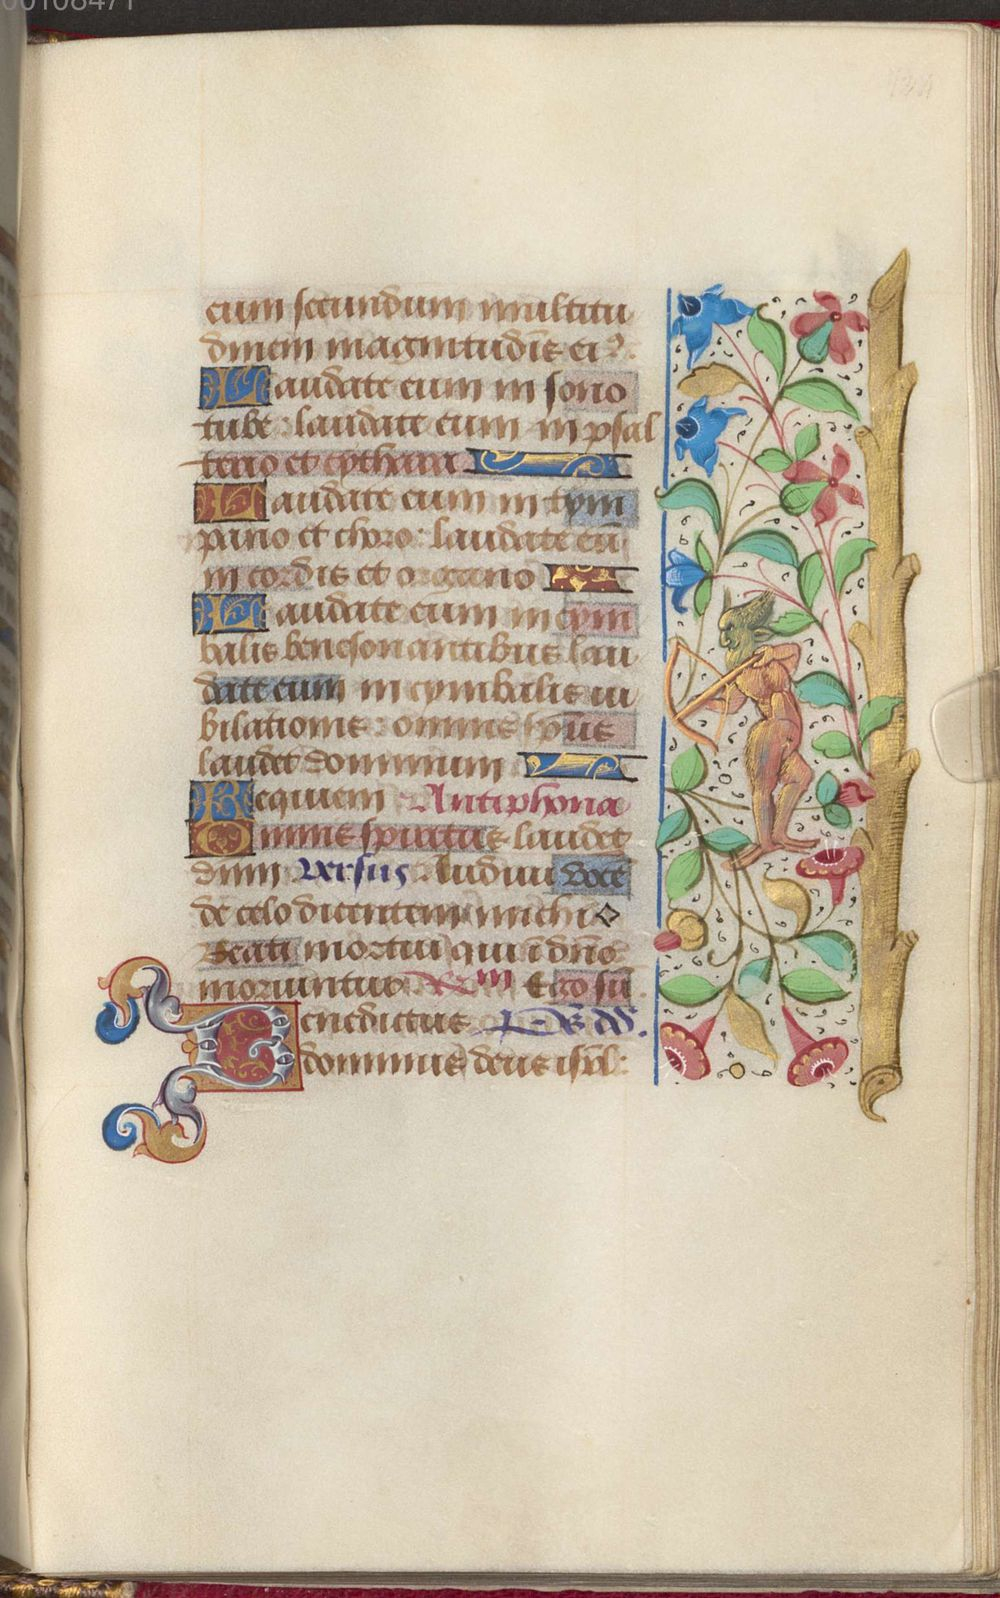 00108471
134
cum secundum multitu
dinem magnitudis̄ ei9.
Laudate eum in sono
tube : laudate eum in psal
terio et cythara
Laudate eum in tym
pano et choro : laudate eū
in cordis et organo
Laudate eum in cym
balis benesonantibus lau
date eum in cymbalis iu
bilationis : omnis spūs
laudet dominum
Requiem Antiphona
Omnis spiritus laudet
dnm versus Audiui voce
de celo dicentem michi
Beati mortui qui i dn̄o
moriuntur Ego sū
Benedictus ps dd.
dominus deus isrl: